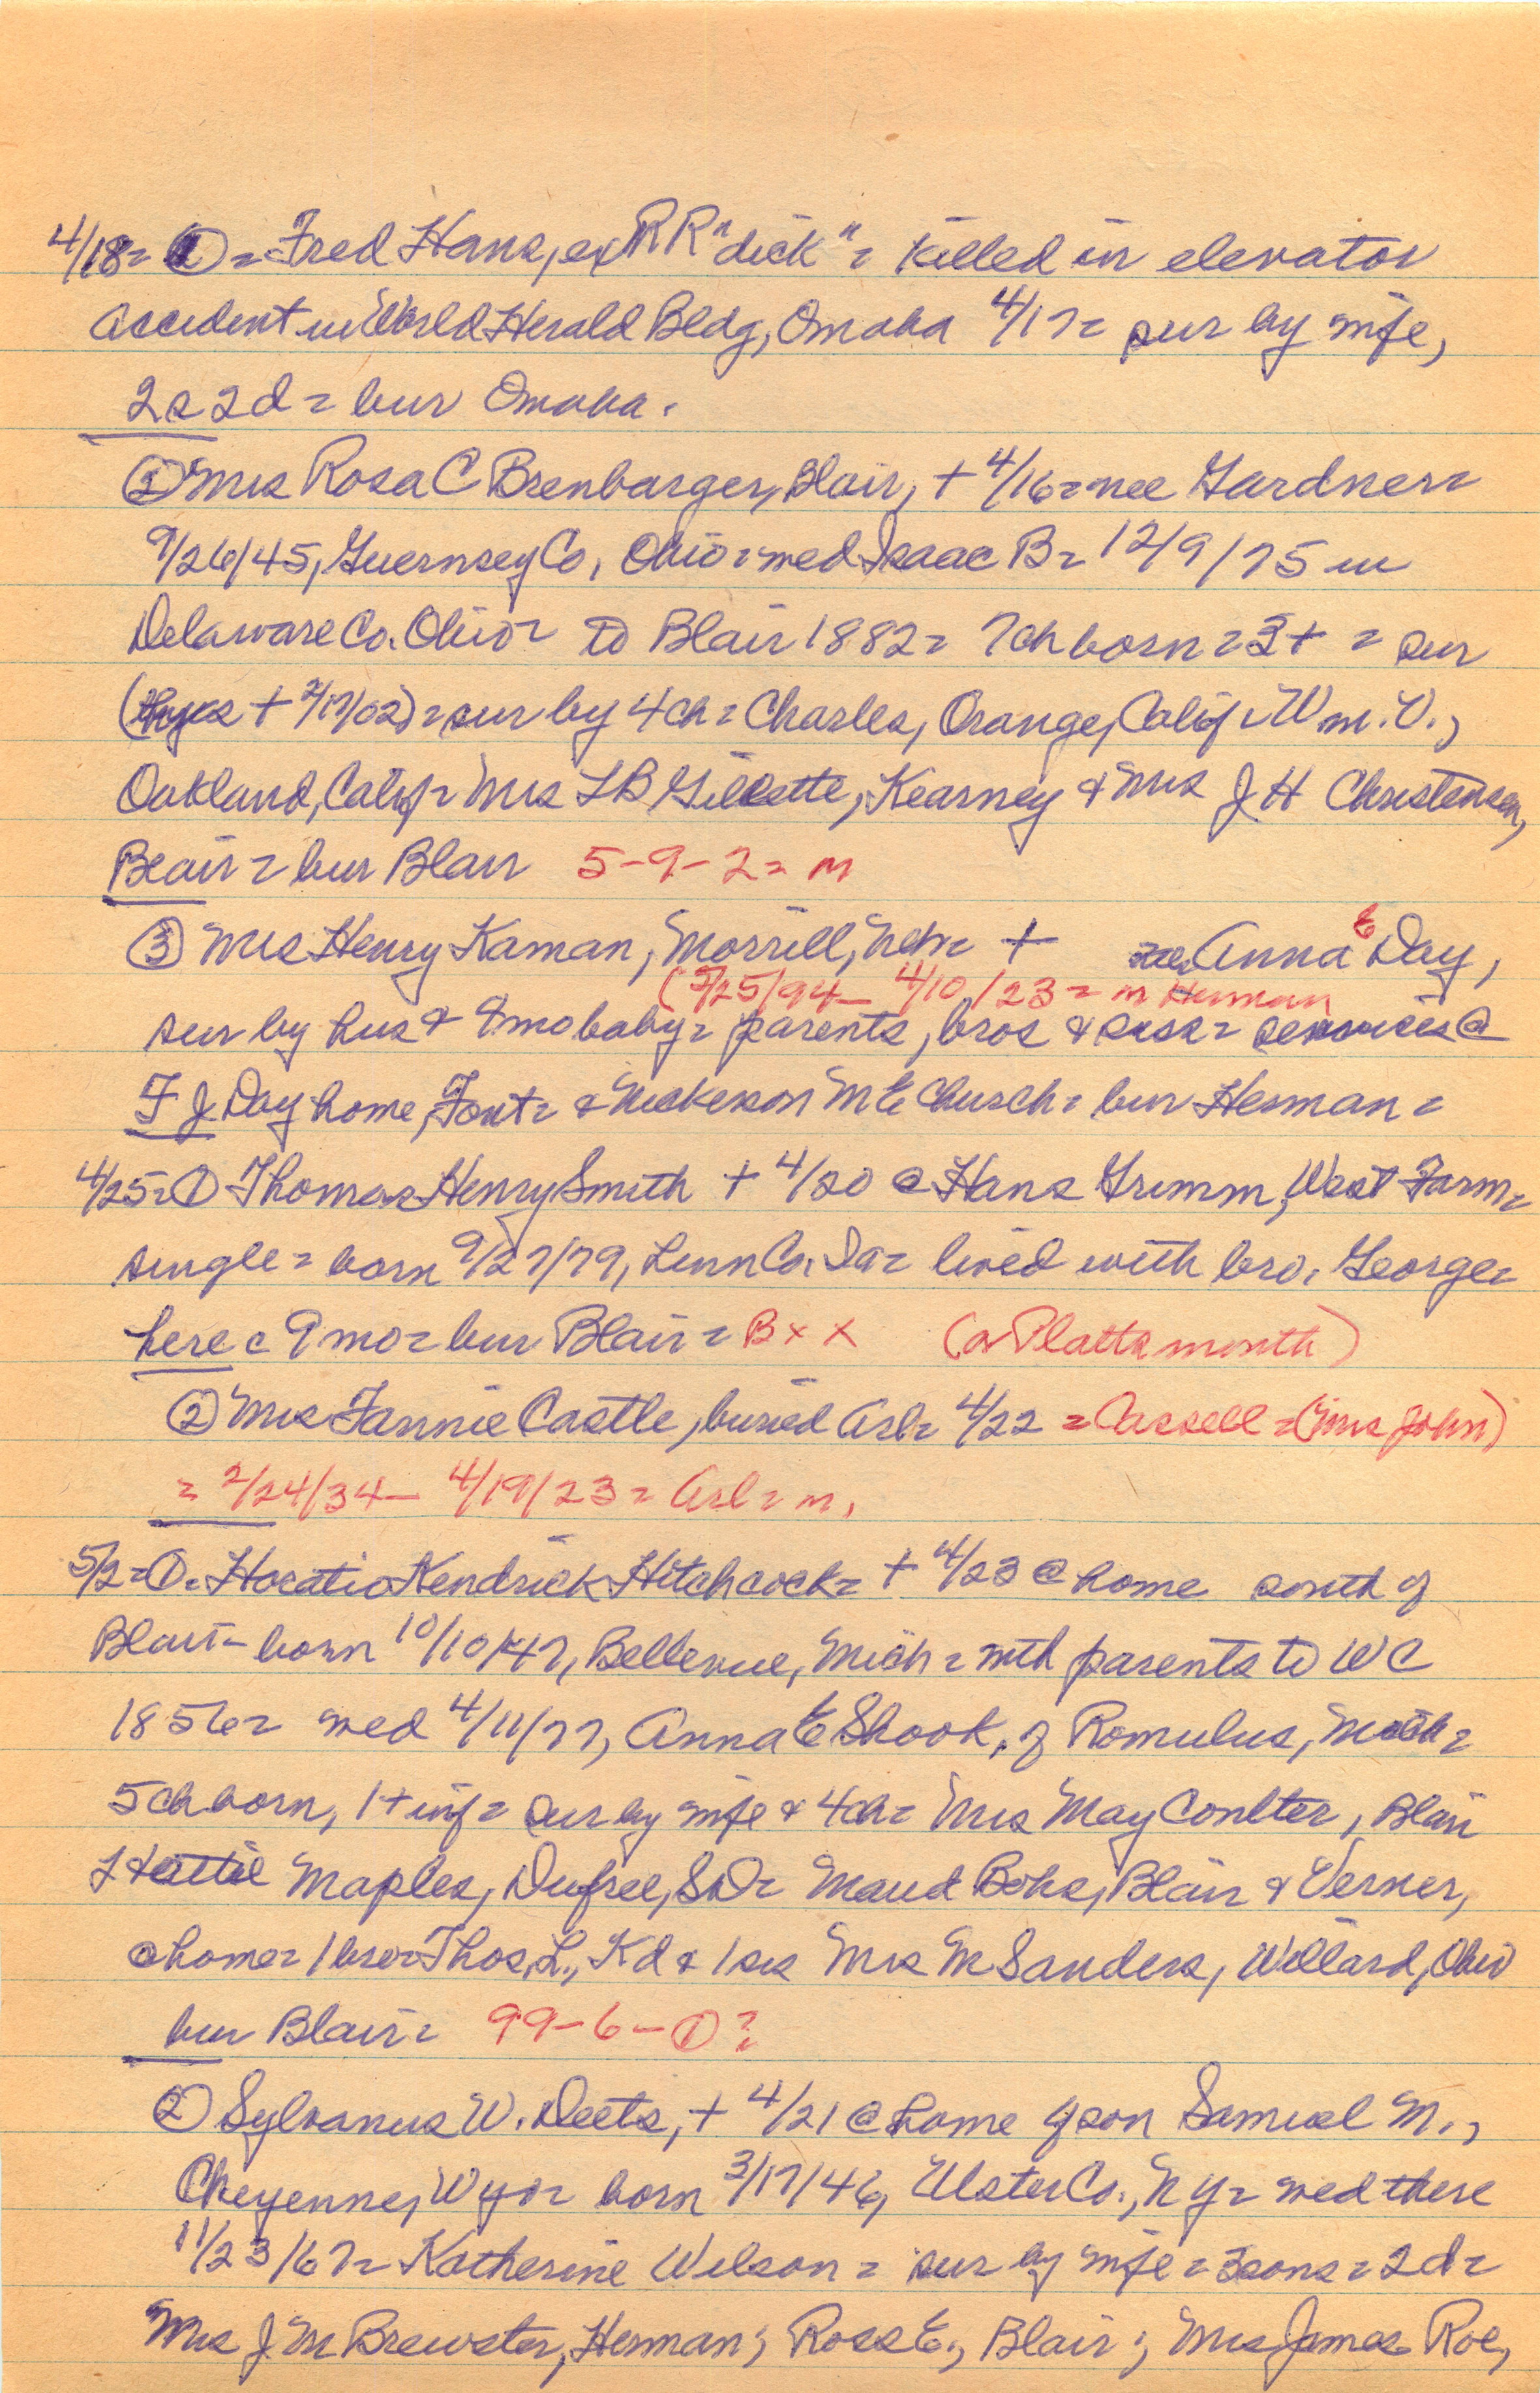 4/18= ① = Fred Hans, ex RR "dick" = killed in elevator
accident in World Herald Bldg, Omaha 4/17= sur by wife,
2s 2d = bur Omaha.
② Mrs Rosa C Brenbarger, Blair, + 4/16 = nee Gardner =
9/26/45, Guernsey Co, Ohio = med Isaac B = 12/9/75 in
Delaware Co. Ohio = to Blair 1882 = 7 ch born = 3+ = sur
+ 2/17/02) = sur by 4 ch = Charles, Orange, Calif = Wm. V.,
Oakland, Calif = Mrs L B Gillette, Kearney & Mrs J H Christensen,
Blair = bur Blair 5-9-2 = m
③ Mrs Henry Kaman, Morrill, Nebr = + nee Anna E Day,
(5/25/94 - 4/10/23 = m Herman
sur by hus & 9 mo baby = parents, bros & siss = services @
F J Day home, Font = & Nickerson ME Church = bur Herman =
4/25 = ① Thomas Henry Smith + 4/20 @ Hans Grimm, West Farm =
single = born 9/27/79, Linn Co. Ia = lived with bro. George =
here c 9 mo = bur Blair = B x x (or Plattsmouth)
② Mrs Fannie Castle, buried Arl = 4/22 = Cassell = (Mrs John)
= 2/24/34 - 4/19/23 = Arl = m.
5/2 = ① = Horatio Kendrick Hitchcock = + 4/23 @ home south of
Blair - born 10/10/47, Bellevue, Mich = with parents to WC
1856 = med 4/11/77, Anna E Shook, of Romulus, Mich =
5 ch born, 1 + inf = sur by wife & 4 ch = Mrs May Coulter, Blair
Hattie Maples, Dupree, SD = Maud Bohs, Blair & Verner,
@ home = 1 bro = Thos, L., Kd & 1 sis Mrs M Sanders, Willard, Ohio
bur Blair = 99-6-① ?
② Sylvanus W. Deets, + 4/21 @ home of son Samuel M.,
Cheyenne, Wyo = born 3/17/46, Ulster Co., NY = med there
11/23/67 = Katherine Wilson = sur by wife = 3 sons = 2d =
Mrs J M Brewster, Herman; Ross E., Blair; Mrs James Roe,